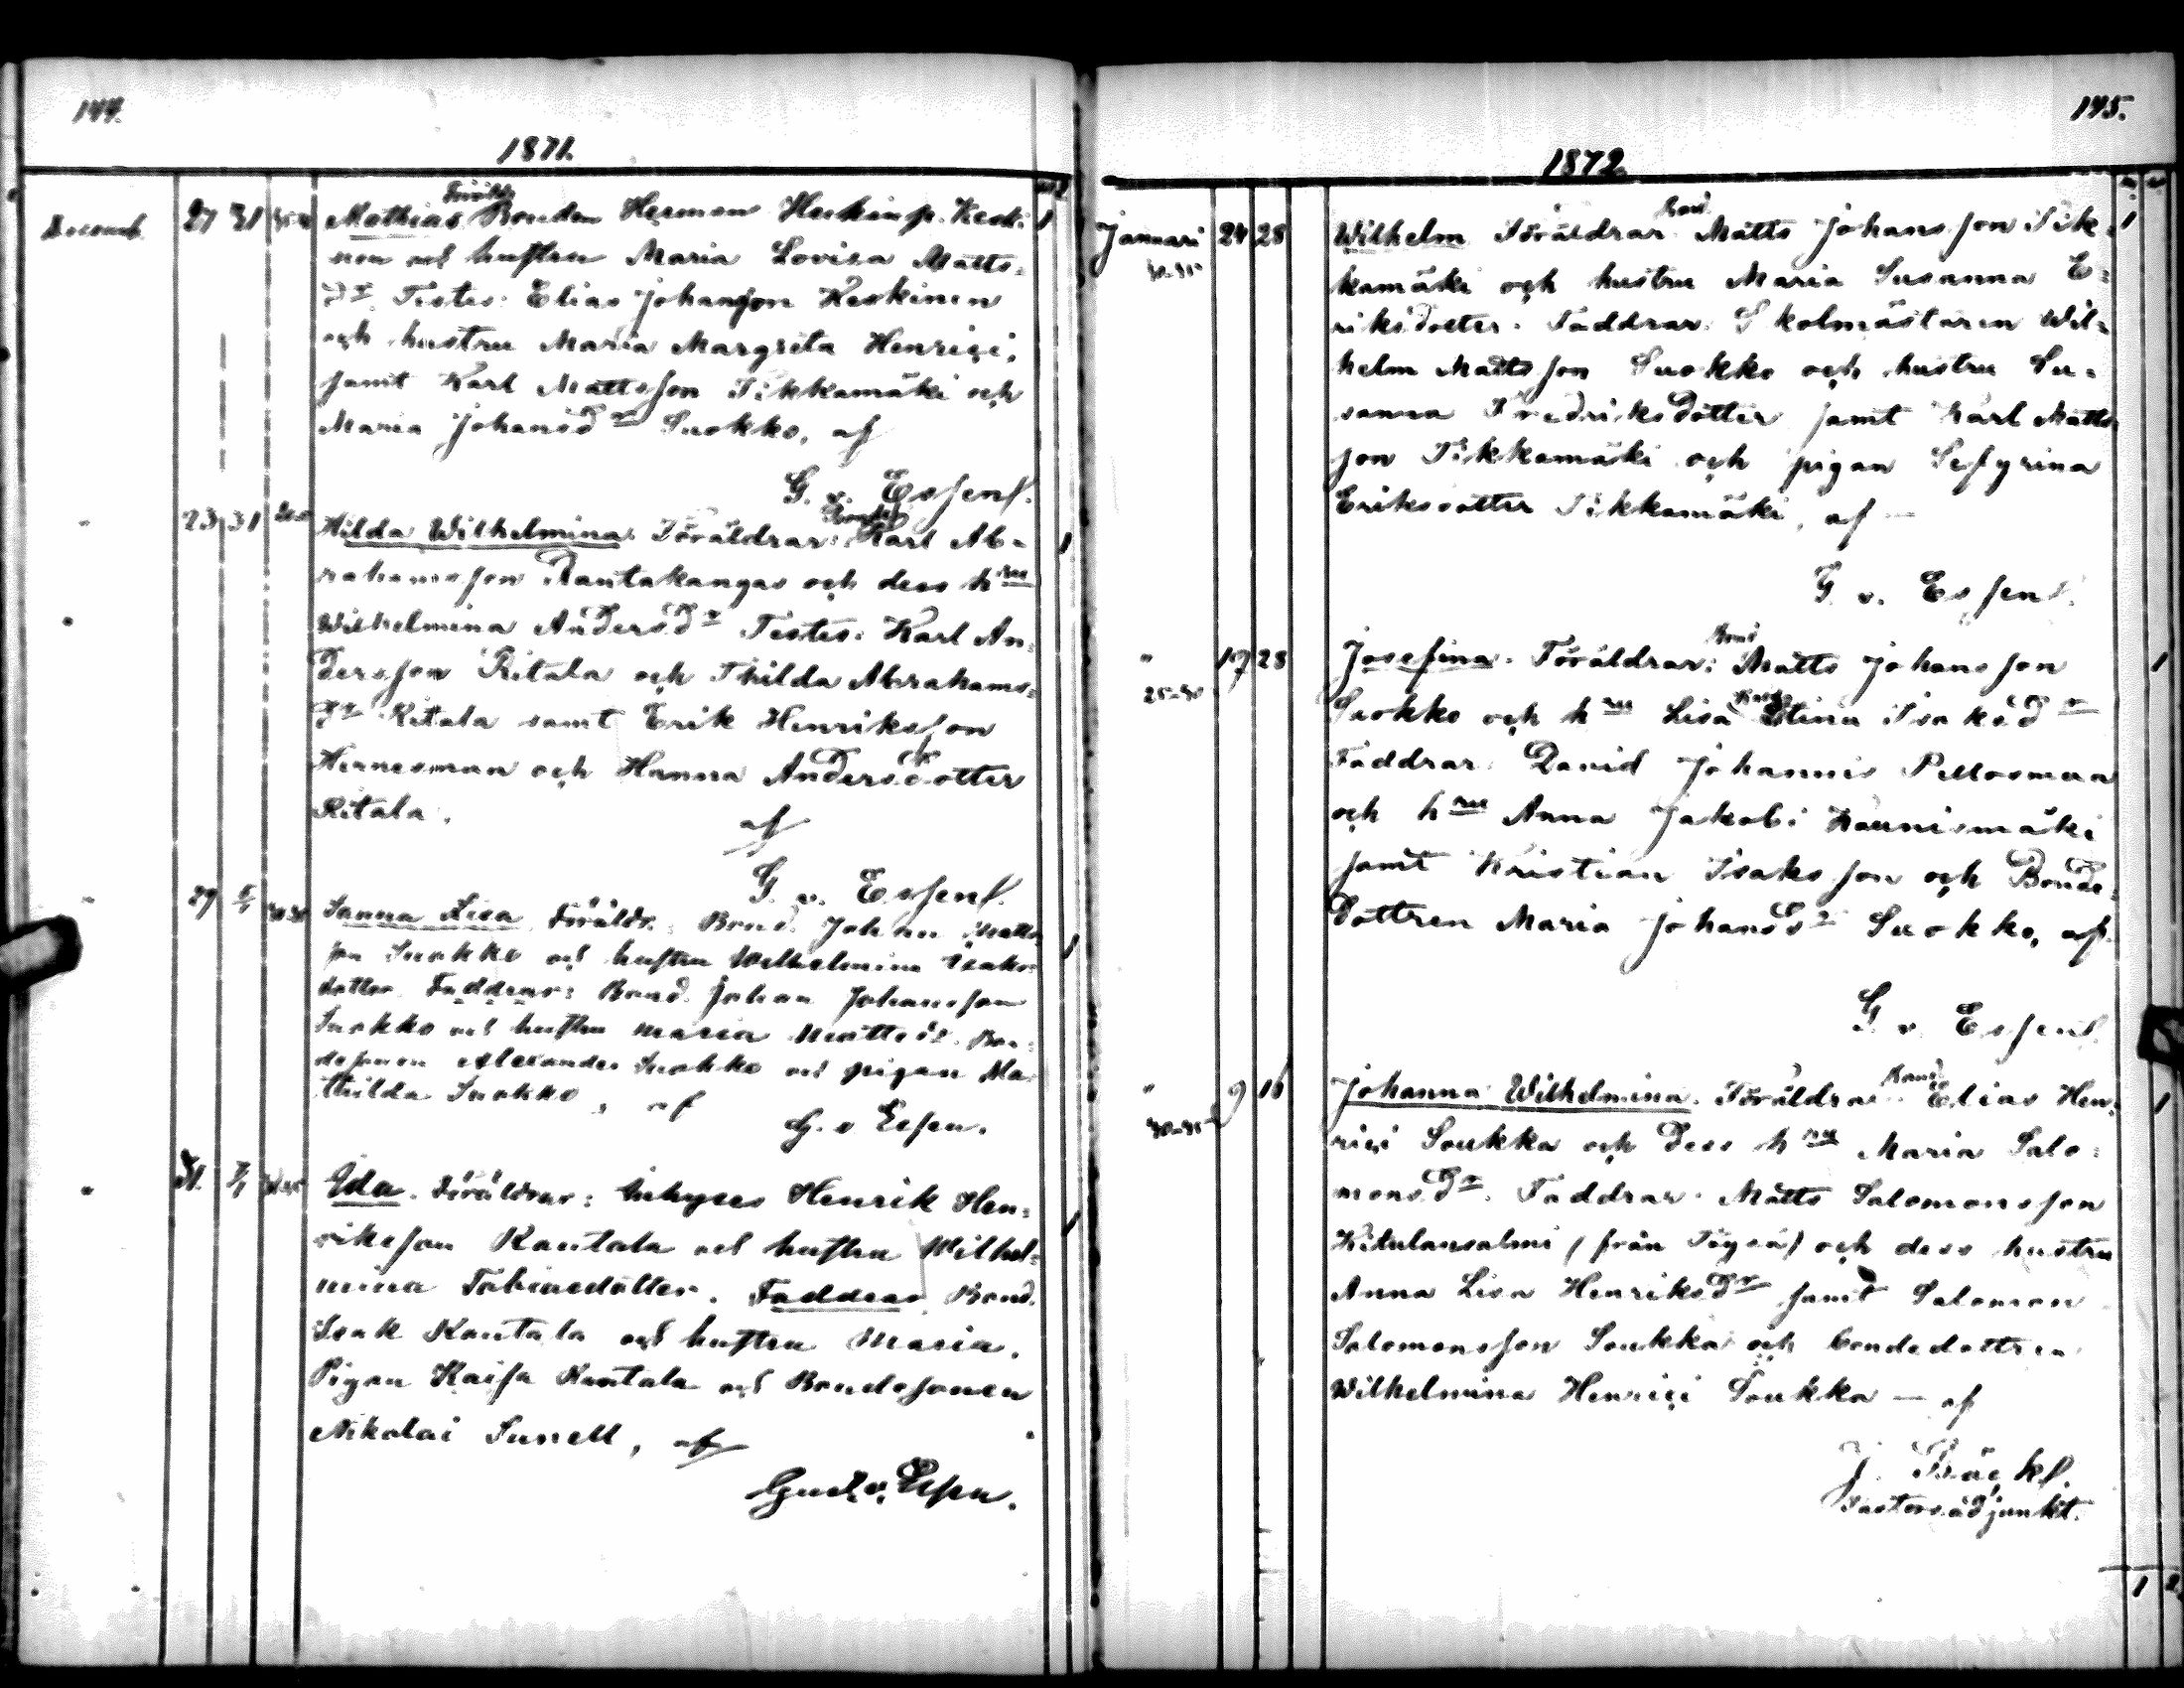 144.
1871.
Decemb. 27 31 Mathias Föräldr. Bonden Herman Herkinp. Keski-
nen och hustru Maria Lovisa Matts-
dr. Testes: Elias Johansson Keskinen
och hustru Maria Margreta Henrici,
samt Karl Mattsson Tikkamäki och
Maria Johansdr Suokko, af
G. v. Essen.
" 23 31 Hilda Wilhelmina. Föräldrar: Bonden Karl Ab-
rahamsson Rautakangas och dess hru
Wilhelmina Andersdr Testes: Karl An-
dersson Ritala och Thilda Abrahams-
dr Ritala samt Erik Henriksson
Hennesman och Hanna Andersdotter
Ritala, af
G. v. Essen.
" 29 Sanna Lisa Föräldr.: Bond. Johan Matts
son Suokko och hustru Wilhelmina Isaks-
dotter Faddrar: Bond. Johan Johansson
Suokko och hustru Maria Mattsd. Bon-
desonen Alexander Suokko och pigan Ma-
thilda Suokko, af
G. v Essen.
" 31. Ida. Föräldrar: Inhyses Henrik Hen-
riksson Rautala och hustru Wilhel-
mina Tobiasdotter. Faddrar Bond.
Isak Rautala och hustru Maria.
Pigan Kaisa Rautala och Bondesonen
Nikolai Sunell, af
Gust. v. Essen.
145.
1872.
Januari 24 28 Wilhelm Föräldrar: Bond. Matts Johansson Tik-
30-35 kamäki och hustru Maria Susanna E-
riksdotter. Faddrar: Skolmästaren Wil-
helm Mattsson Suokko och hustru Su-
sanna Fredriksdotter samt Karl Matts
son Tikkamäki och pigan Sefyrina
Eriksdotter Tikkamäki, af —
G. v. Essen.
" 17 28 Josefina. Föräldrar: Bond. Matts Johansson
25-30 Suokko och hru Lisa Stina Isaksdr
Faddrar: David Johannis Pellosman
och hru Anna Jakobi Kaunismäki
samt Kristian Isaksson och Bonde-
dottren Maria Johansdr Suokko, af
G. v. Essen.
" 9 16 Johanna Wilhelmina. Föräldrar: Bond. Elias Hen-
30-35 rici Soukka och dess hru Maria Salo-
monsdr. Faddrar: Matts Salomonsson
Kitulansalmi (från Töysä) och dess hustru
Anna Lisa Henriksdr samt Salomon
Salomonsson Soukka och bondedottren
Wilhelmina Henrici Soukka — af
J. Bäck.
Pastorsadjunkt.
1 2